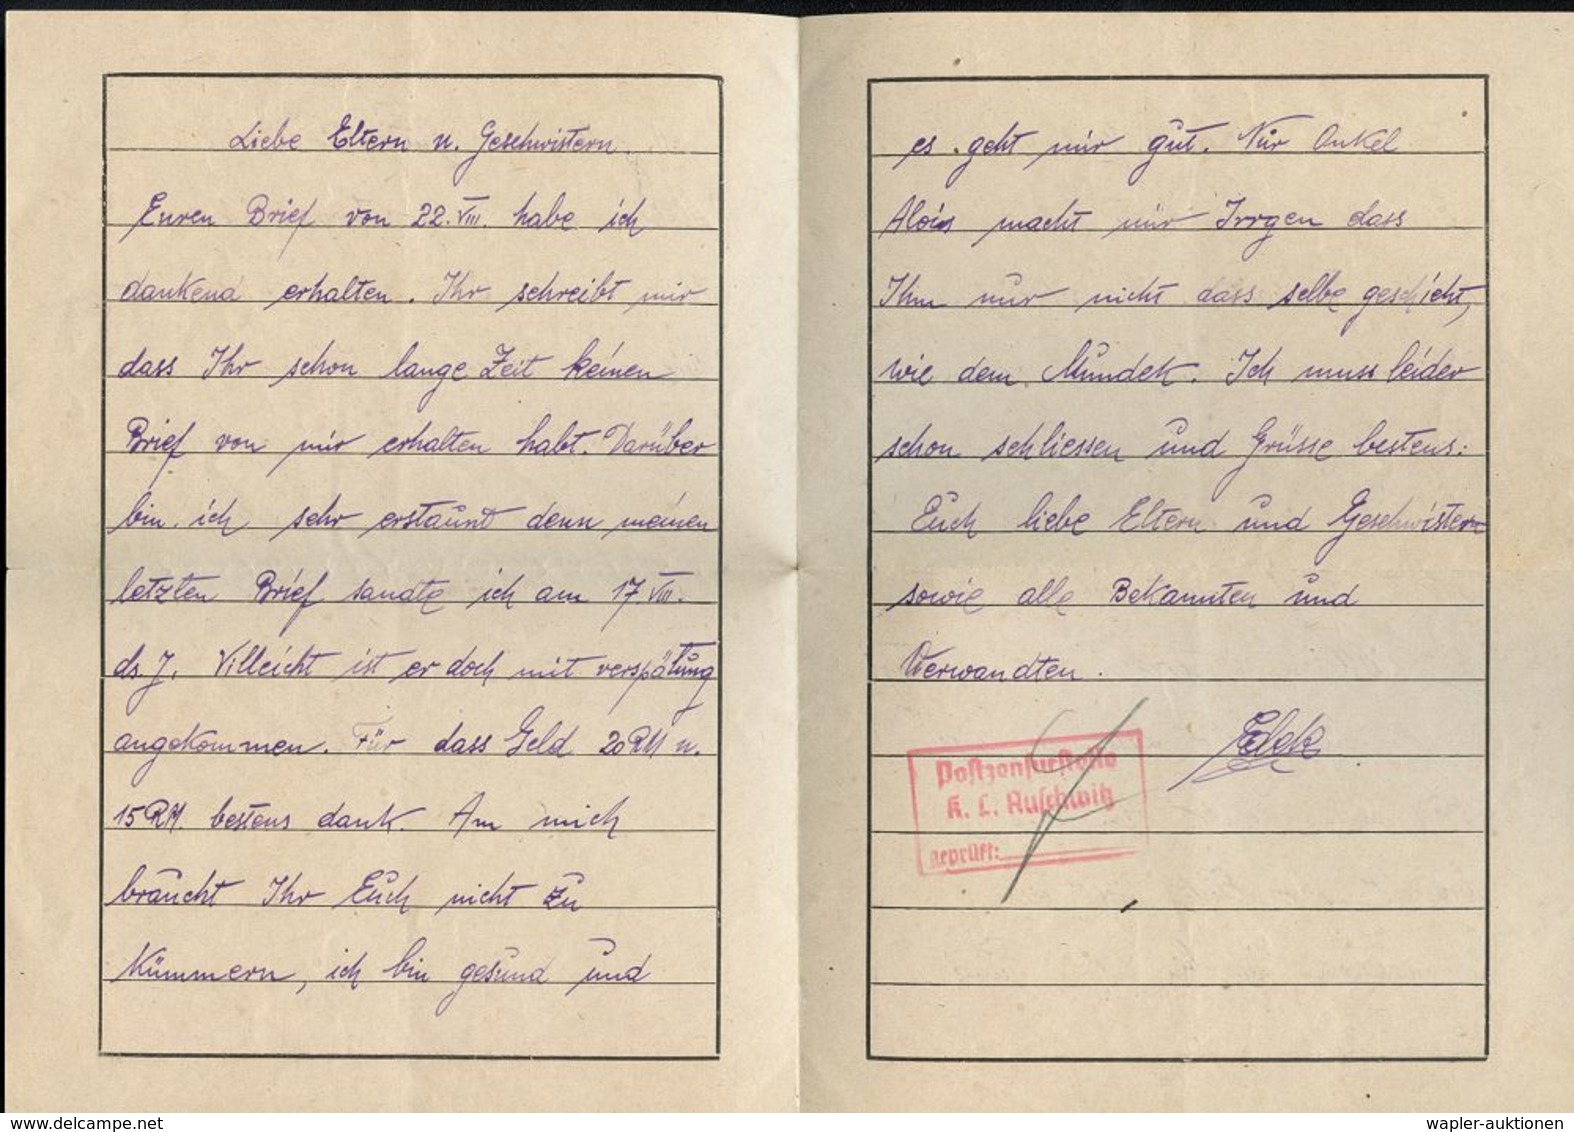 Liebe Eltern u. Geschwistern.
Euren Brief von 22.VIII. habe ich
dankend erhalten. Ihr schreibt mir
dass Ihr schon lange Zeit keinen
Brief von mir erhalten habt. Darüber
bin ich sehr erstaunt denn meinen
letzten Brief sandte ich am 17.VIII.
ds. J. Villeicht ist er doch mit verspätung
angekommen. Für dass Geld 20 RM u.
15 RM. bestens dank. Am mich
braucht Ihr Euch nicht zu
Kümmern, ich bin gesund und
es geht mir gut. Nur Onkel
Alois macht mir Irrgen dass
Ihm nur nicht dass selbe geschicht,
wie dem Mundek. Ich muss leider
schon schliessen und Grüsse bestens:
Euch liebe Eltern und Geschwistern
sowie alle Bekannten und
Verwandten.
Edek
Postzensurstelle
K. L. Auschwitz
geprüft:
wapler-auktionen